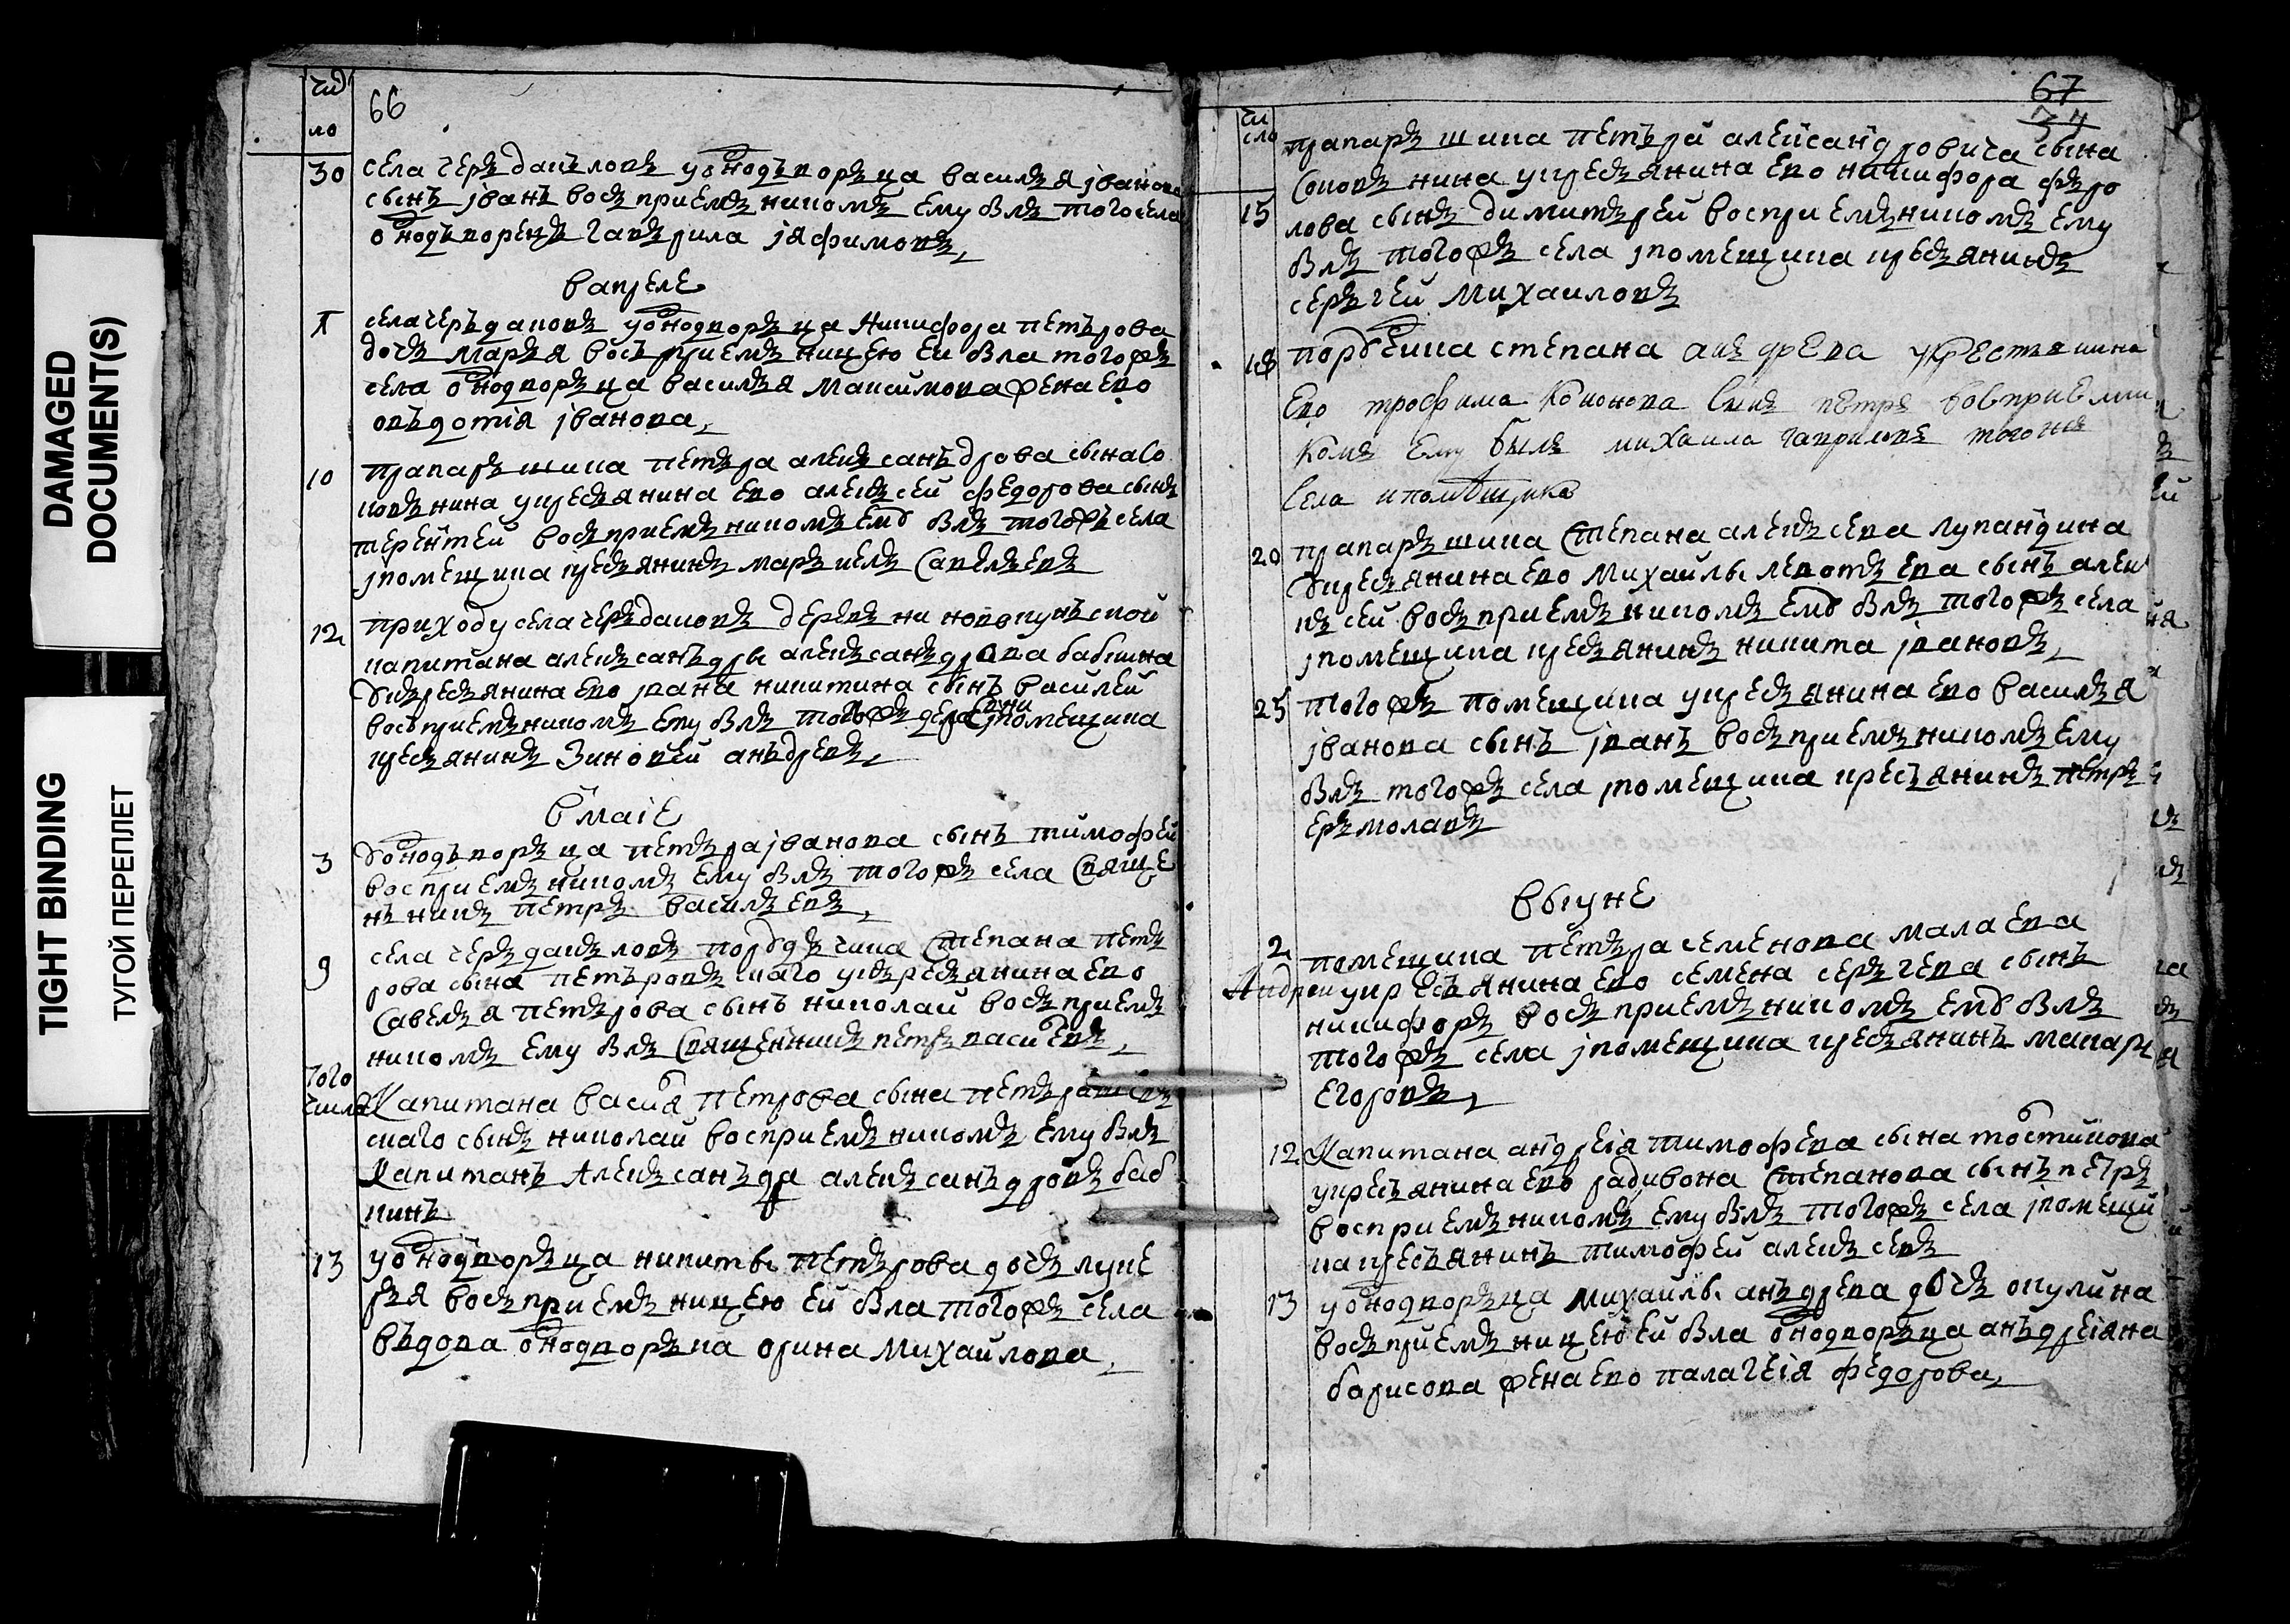 DAMAGED
DOCUMENT(S)
TIGHT BINDING
ТУГОЙ ПЕРЕПЛЕТ
чи
ло
66
30 села черъ дацъ ловъ уоднодъворъца василъя јванова
сынъ јванъ восъприемъникомъ ему былъ того села
однодъворецъ гавърила јяфимовъ
вапреле
1 села черъдаковъ уоднодворъца Никифора петърова
дочъ маръя восъприемъницею еи была тогожъ
села однодворъца василъя максимова жена ево
овъдотия јванова
10 прапаръщика петъра алекъсанъдрова сына со
ковънина укресъянина ево алекъсей федорова сынъ
терентей восъприемъникомъ емꙋ былъ тогожъ села
јпомещика кресъянинъ маръкелъ савелъевъ
12 приходу села черъдаковъ деревъни новопунъской
капитана алекъсанъдры алекъсанъдрова бабкина
ꙋкъресъянина ево јвана никитина сынъ василей
восъприемъникомъ ему былъ тогожъ јпомещика
кресъянинъ Зиновей анъдревъ
вмаiе
3 ꙋоднодъворъца петъра јванова сынъ тимофей
восприемъникомъ ему былъ тогожъ села свяще
нъникъ петръ василъевъ
9 села черъдакъловъ порꙋдъчика степана петъ
рова сына петъровъскаго укъресъянина ево
савелъя петърова сынъ николай восъприемъ
никомъ ему былъ священникъ петръ васиевъ
того
числа Капитана васия петрова сына петъровъ
скаго сынъ николай восприемъникомъ ему былъ
Капитанъ Алекъсанъдра алекъсанъдровъ баб
кинъ
13 уоднодворъца никиты петърова дочъ луке
ръя восъприемъницею ей была тогожъ села
въдова однодворъка орина михаилова
67
чи
сло
прапаръщика петъра александровича сына
соковънина укресъянина ево никифора фъро
15 лова сынъ димитърей восприемъникомъ ему
былъ тогожъ села јпомещика кресъянинъ
серъгей михаиловъ
18 порꙋчика степана анъдрева укрестьянина
ево трофима Кононова сынъ петръ восприемни
комъ ему былъ михаила гавриловъ того же
села ипомѣщика
20 прапаръщика степана алекъсева лупандина
ꙋкресъянина ево михаилы левотъева сынъ алек
късей восъприемъникомъ емꙋ былъ тогожъ села
јпомещика кресъянинъ никита јвановъ
25 тогожъ помещика укресъянина ево василъя
јванова сынъ јванъ восъприемъникомъ ему
былъ тогожъ села јпомещика кресъянинъ петръ
еръмолавъ
выуне
2 помещика петъра семенова малаева
Андреи укресъянина ево семена серъгева сынъ
никифоръ восъприемъникомъ емꙋ былъ
тогожъ села јпомещика кресъянинъ макаръ
егоровъ
12 Капитана андреiя тимофева сына
укресъянина ево радивона степанова сынъ петръ
восприемъникомъ ему былъ тогожъ села јпомещи
ка кресъянинъ тимофей алекъсевъ
13 уоднодворъца михаилы анъдрева дочъ окулина
восъприемъницею ей была однодворъца анъдреiяна
барисова жена ево палагеiя федорова